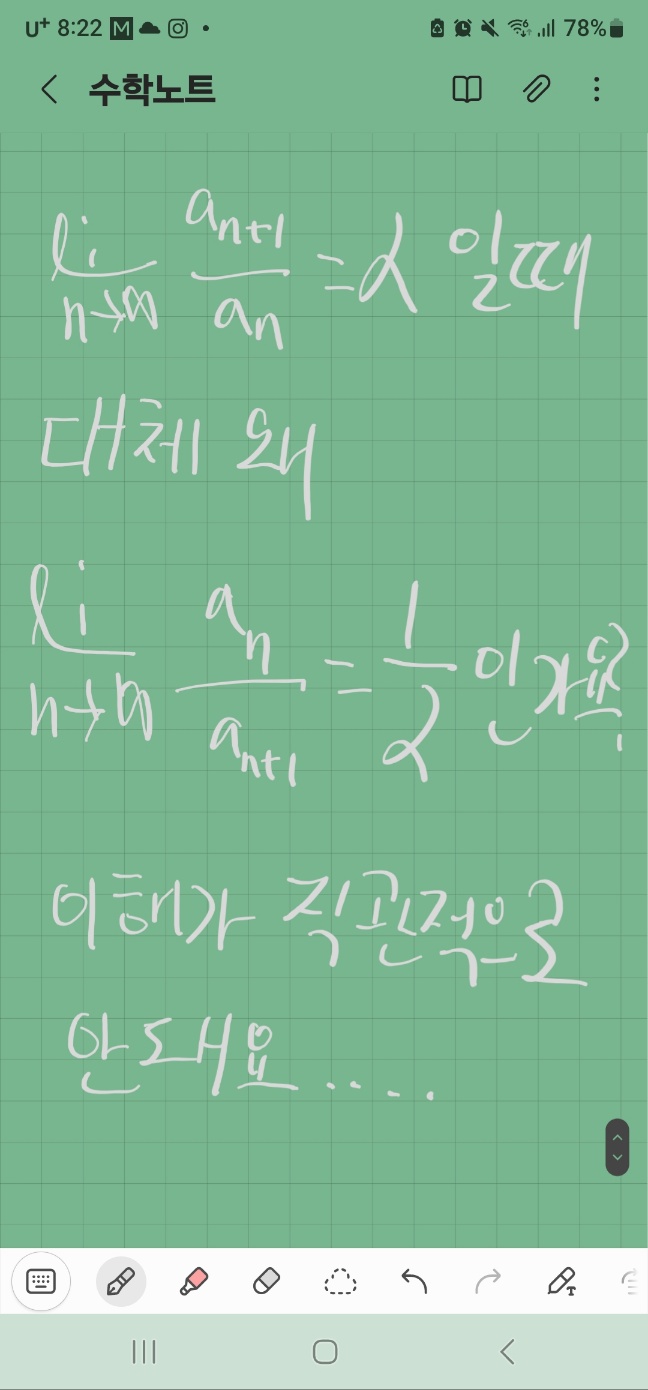 U+ 8:22 M 78%
수학노트
lim n→∞ a_{n+1}/a_n = α 일때
대체 왜
lim n→∞ a_n/a_{n+1} = 1/α 인가요?
이해가 직관적으로
안 돼요.....